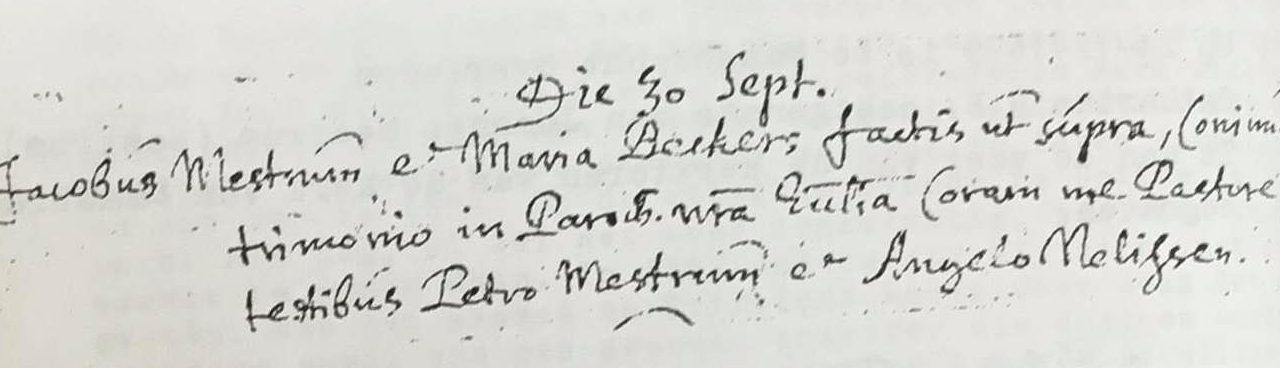 Die 30 Sept.
Jacobus Mestrum et Maria Beckers factis ut supra, Coniuncti
trimonio in Paroch. nra Eccl̅ia Coram me Pastore
testibus Petro Mestrum et Angelo Melissen.